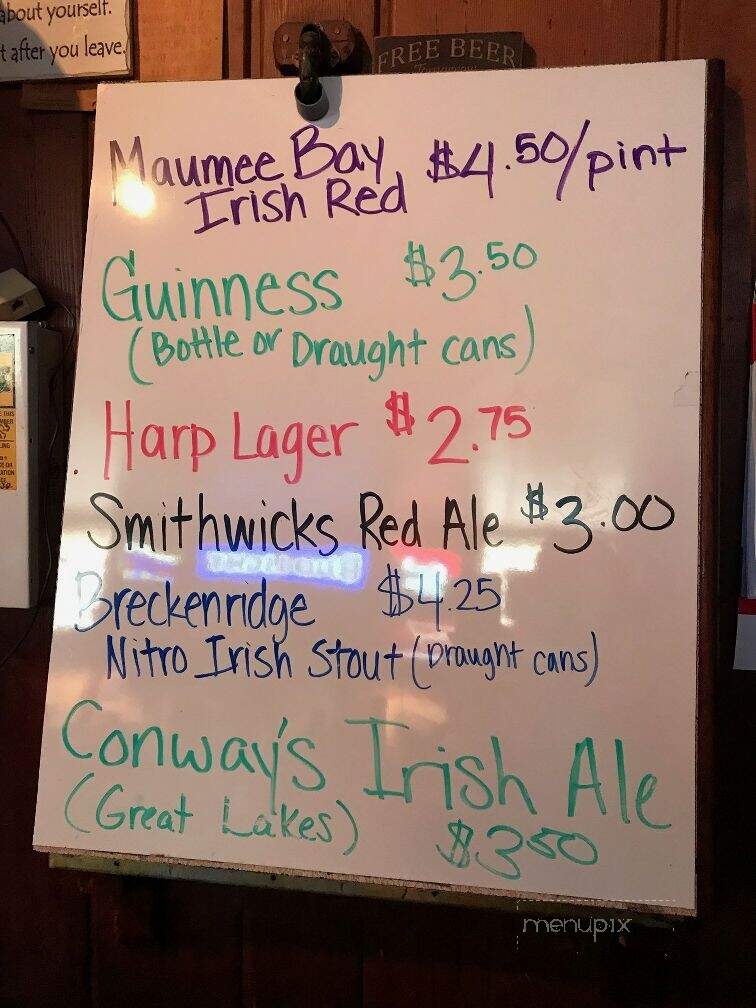 about yourself.
t after you leave.
FREE BEER
Tomorrow
Maumee Bay $4.50/pint
Irish Red
Guinness $3.50
(Bottle or Draught cans)
Harp Lager $2.75
Smithwicks Red Ale $3.00
Breckenridge $4.25
Nitro Irish Stout (Draught cans)
Conway's Irish Ale
(Great Lakes) $3.50
menupix